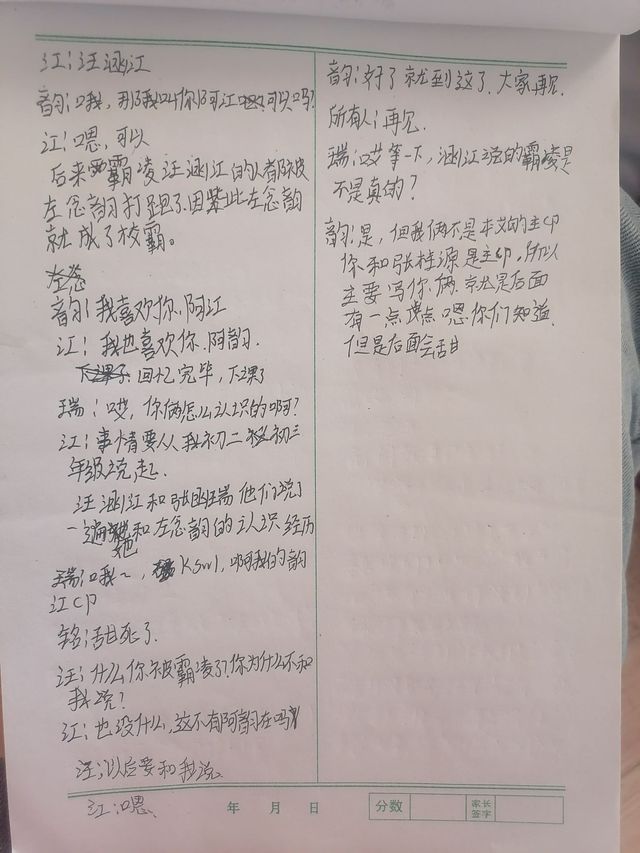 江：汪涵江
韵：哦，那我叫你阿江可以吗？
江：嗯，可以
后来霸凌汪涵江的人都被
左念韵打跑了，因此左念韵
就成了校霸。
韵：我喜欢你，阿江
江：我也喜欢你，阿韵.
回忆完毕，下课了
瑞：哎，你俩怎么认识的啊？
江：事情要从我初二初三
年级说起.
汪涵江和张瑞他们说了
一遍他和左念韵的认识经历
瑞：哦~，Kswl，啊我的韵
江CP
铭：甜死了.
汪：什么，你被霸凌了？你为什么不和
我说？
江：也没什么，这不有阿韵在吗
汪：以后要和我说、
江：嗯、
韵：好了就到这了，大家再见.
所有人：再见.
瑞：哎等一下，涵江说的霸凌是
不是真的？
韵：是，但我俩不是本文的主CP
你和张桂源是主CP，所以
主要写你俩，就是后面
有一点点嗯你们知道.
但是后面会甜
年 月 日
分数
家长
签字